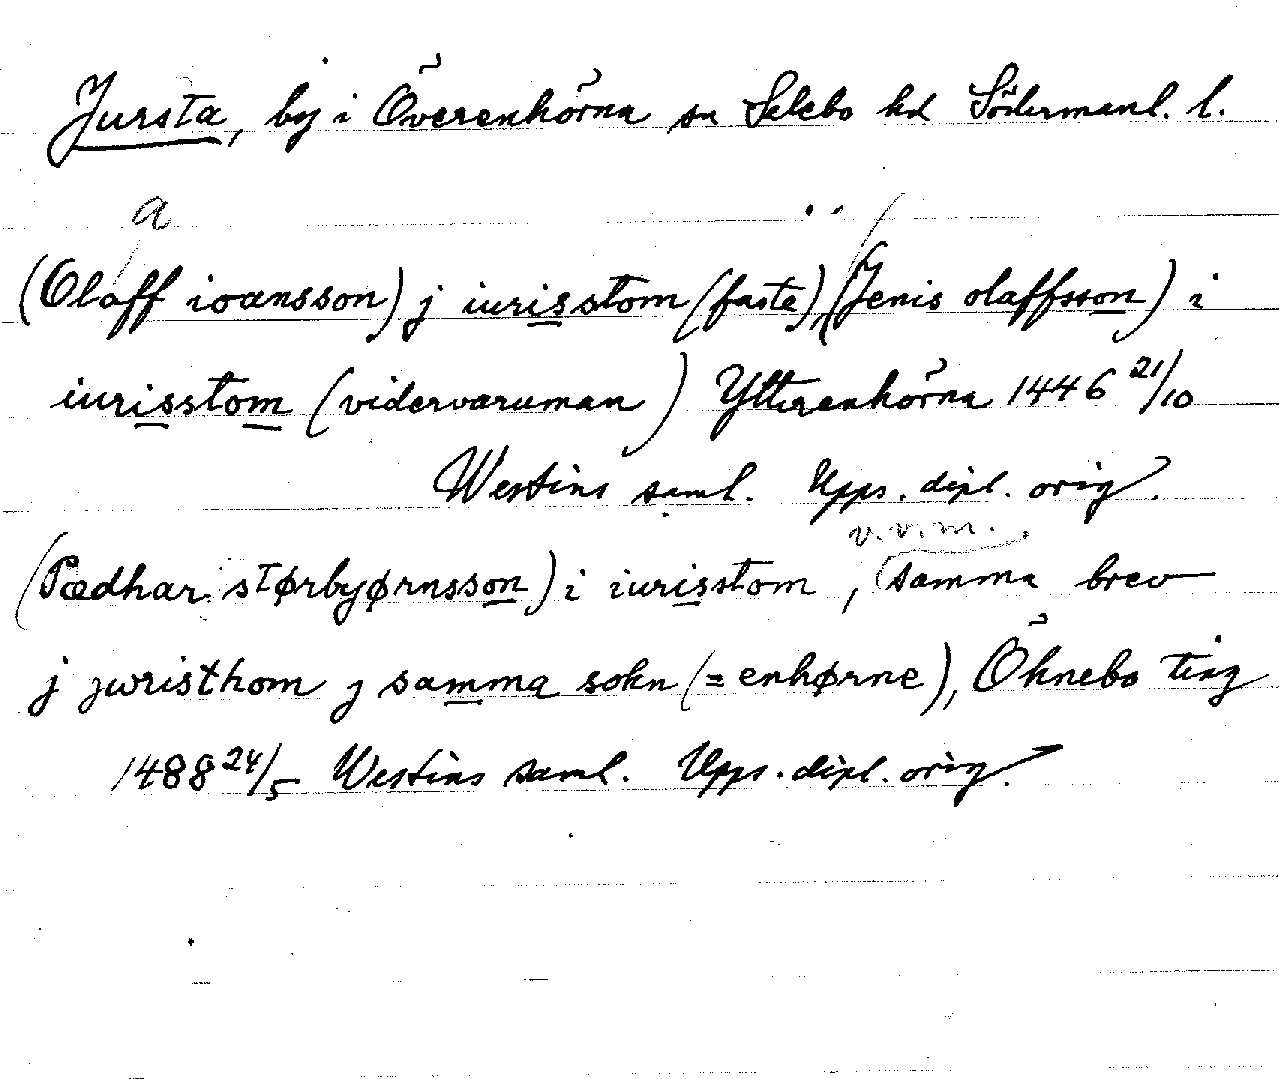 Jursta, by i Överenhörna sn Selebo hd Södermanl. l.
a
(Oloff ioansson) j iurisstom (faste), (Jenis olaffsson) i
iurisstom (vidervaruman) Ytterenhörna 1446 21/10
Westins saml. Upps. dipl. orig.
v.v.m.
(Pædhar størbyørnsson) i iurisstom, (samma brev
j jwristhom j samma sokn (= enhørne), Öknebo ting
1488 24/5 Westins saml. Upps. dipl. orig.